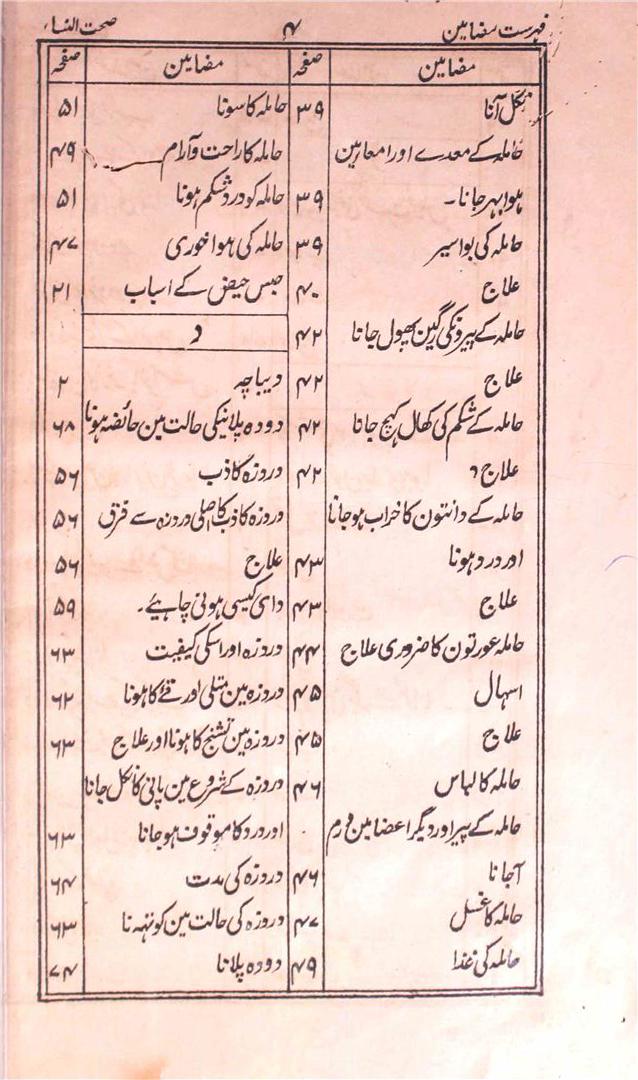 فہرست مضامین ۴ صحت النساء
مضامین صفحہ
نکل آنا ۳۹
حاملہ کے معدے اور امعا مین
ہوا بہر جانا۔ ۳۹
حاملہ کی بواسیر ۳۹
علاج ۴۰
حاملہ کے پیرونکی رگین پھول جانا ۴۲
علاج ۴۲
حاملہ کے شکم کی کھال کہچ جانا ۴۲
علاج ۴۲
حاملہ کے دانتون کا خراب ہو جانا
اور درد ہونا ۴۳
علاج ۴۳
حاملہ عورتون کا ضروری علاج ۴۴
اسہال ۴۵
علاج ۴۵
حاملہ کا لباس ۴۶
حاملہ کے پیر اور دیگر اعضا مین ورم
آجانا ۴۶
حاملہ کا غسل ۴۷
حاملہ کی غذا ۴۹
مضامین صفحہ
حاملہ کا سونا ۵۱
حاملہ کا راحت و آرام ۴۹
حاملہ کو درد شکم ہونا ۵۱
حاملہ کی ہوا خوری ۴۷
حبس حیض کے اسباب ۲۱
د
دیباچہ ۲
دودہ پلانیکی حالت مین حائضہ ہونا ۶۸
دروزہ کاذب ۵۶
دروزہ کاذب کا اصلی دروزہ سے فرق ۵۶
علاج ۵۶
دای کیسی ہونی چاہیے۔ ۵۹
دروزہ اور اسکی کیفیت ۶۳
دروزہ مین متلی اور قے کا ہونا ۶۲
دروزہ مین تشنج کا ہونا اور علاج ۶۳
دروزہ کے شروع مین پانی کا نکل جانا
اور درد کا موقوف ہو جانا ۶۳
دروزہ کی مدت ۶۴
دروزہ کی حالت مین کونتہنا ۶۳
دودہ پلانا ۷۴